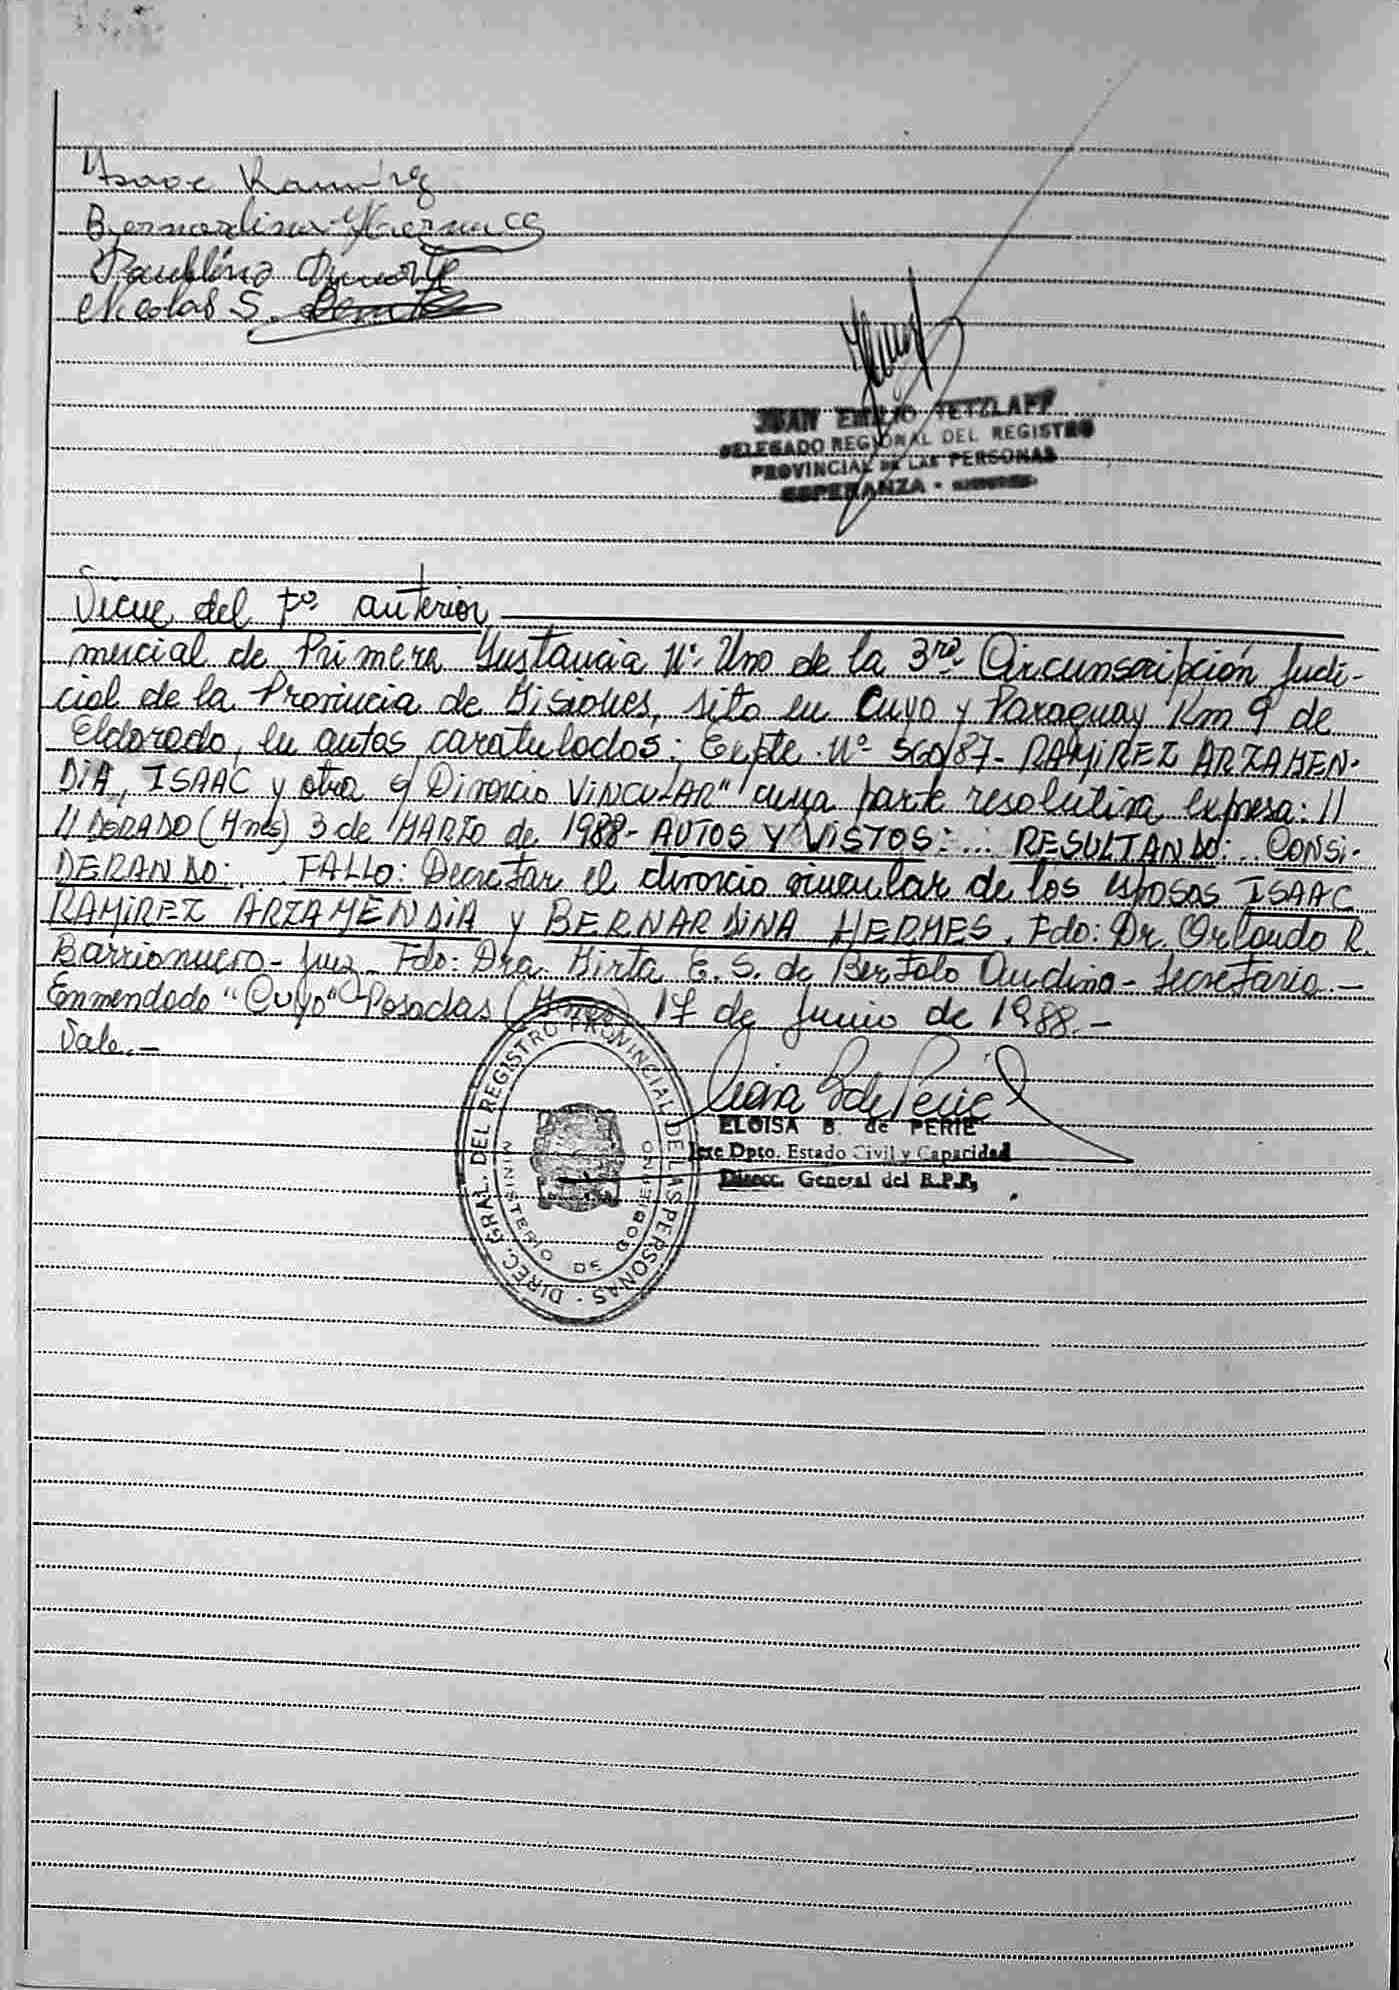 Isaac Ramírez
Bernardina Hermes
Paublino Duarte
Nicolas S.
JUAN EMILIO TETZLAFF
DELEGADO REGIONAL DEL REGISTRO
PROVINCIAL DE LAS PERSONAS
ESPERANZA -
Vicue del Fº anterior
mercial de Primera Instancia Nº Uno de la 3ra. Circunscripción Judi-
cial de la Provincia de Misiones, sito en Cuyo y Paraguay Km 9 de
Eldorado, en autos caratulados: Expte. Nº 560/87- RAMIREZ ARZAMEN-
DIA, ISAAC y otra s/ Divorcio VINCULAR" cuya parte resolutiva expresa: //
// DORADO (Mnes) 3 de MARZO de 1988- AUTOS Y VISTOS: ... RESULTANDO: .. CONSI-
DERANDO: ... FALLO: Decretar el divorcio vincular de los esposos ISAAC
RAMIREZ ARZAMENDIA y BERNARDINA HERMES. Fdo: Dr. Orlando R.
Barrionuevo- Juez- Fdo: Dra. Mirta E. S. de Bertolo Andino- Secretaria.-
Enmendado "Cuyo" Posadas (Mnes) 17 de Junio de 1988.-
Vale.-
ELOISA B. de PERIE
Jefe Dpto. Estado Civil y Capacidad
Direcc. General del R.P.P.
DIREC. GRAL. DEL REGISTRO PROVINCIAL DE LAS PERSONAS -
MINISTERIO DE GOBIERNO